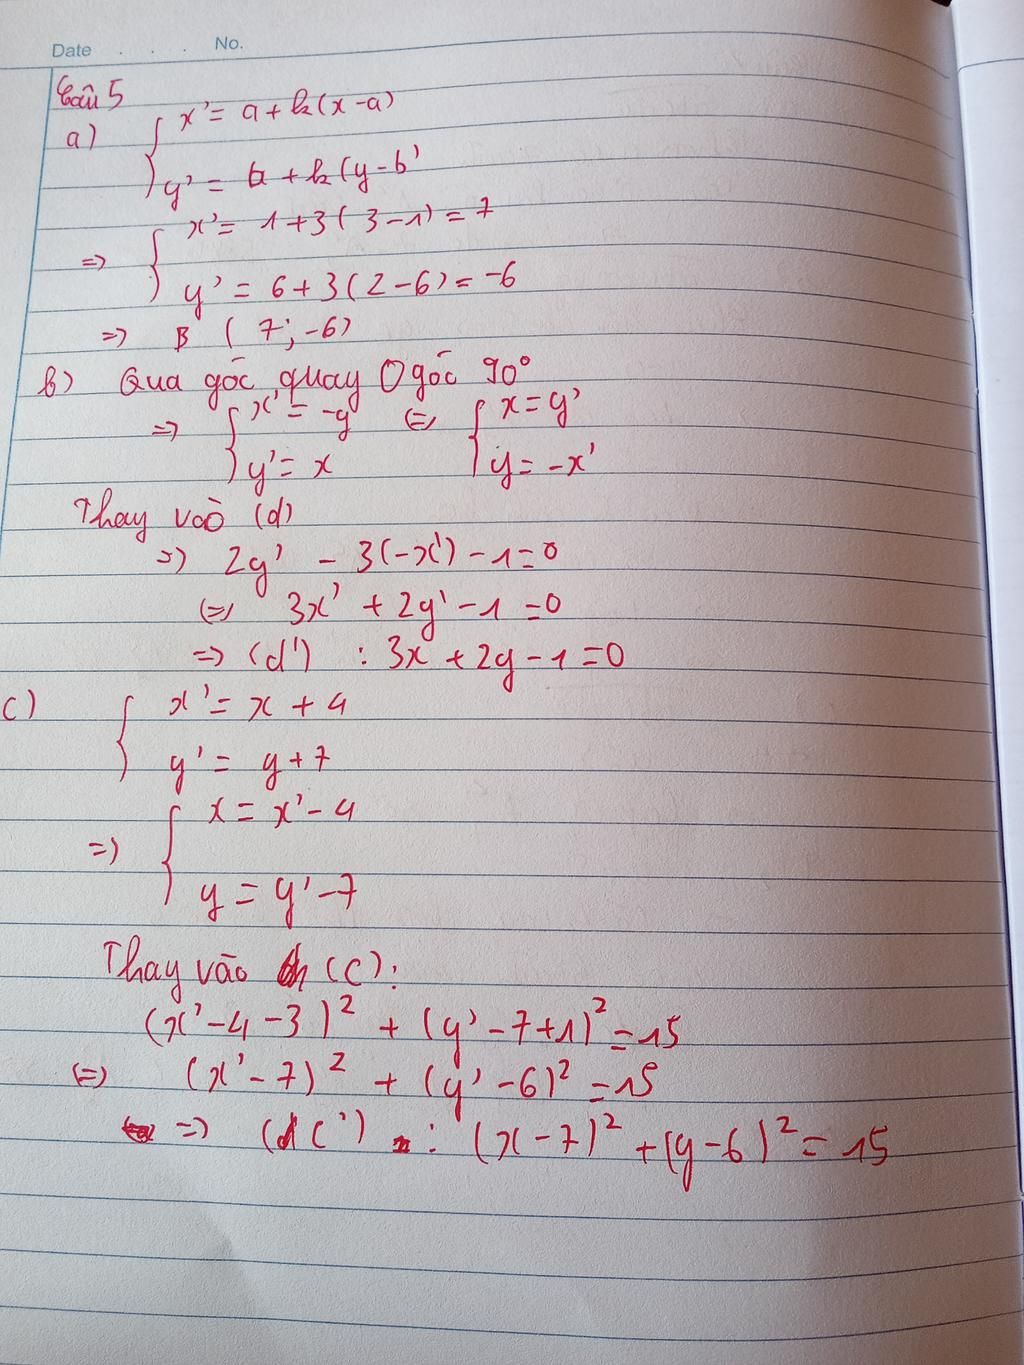 Date . . . . No.
Câu 5
a) { x' = a + k(x - a)
y' = b + k(y - b'
=> { x' = 1 + 3(3 - 1) = 7
y' = 6 + 3(2 - 6) = -6
=> B (7; -6)
b) Qua góc quay O góc 90°
=> { x' = -y <=> { x = y'
y' = x y = -x'
Thay vào (d)
=> 2y' - 3(-x') - 1 = 0
<=> 3x' + 2y' - 1 = 0
=> (d') : 3x + 2y - 1 = 0
c) { x' = x + 4
y' = y + 7
=> { x = x' - 4
y = y' - 7
Thay vào (C):
(x' - 4 - 3)² + (y' - 7 + 1)² = 15
<=> (x' - 7)² + (y' - 6)² = 15
=> (C') : (x - 7)² + (y - 6)² = 15